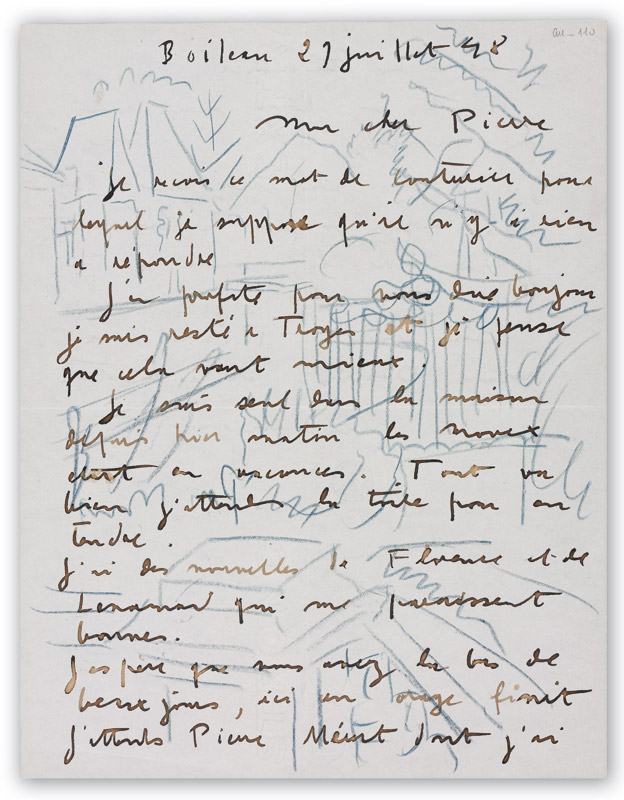 Boileau 27 juillet 48
Mon cher Pierre
Je reçois ce mot de couturier pour
lequel je suppose qu'il n'y a rien
a répondre
J'en profite pour vous dire bonjour
je suis resté à Troyes et je pense
que cela vaut mieux.
Je suis seul dans la maison
depuis hier matin les
étant en vacances. Tout va
bien j'attends la toile pour en
tendre.
J'ai des nouvelles de Florence et de
qui me paraissent
bonnes.
J'espère que vous avez là bas de
beaux jours, ici un orage finit
J'attends Pierre dont j'ai